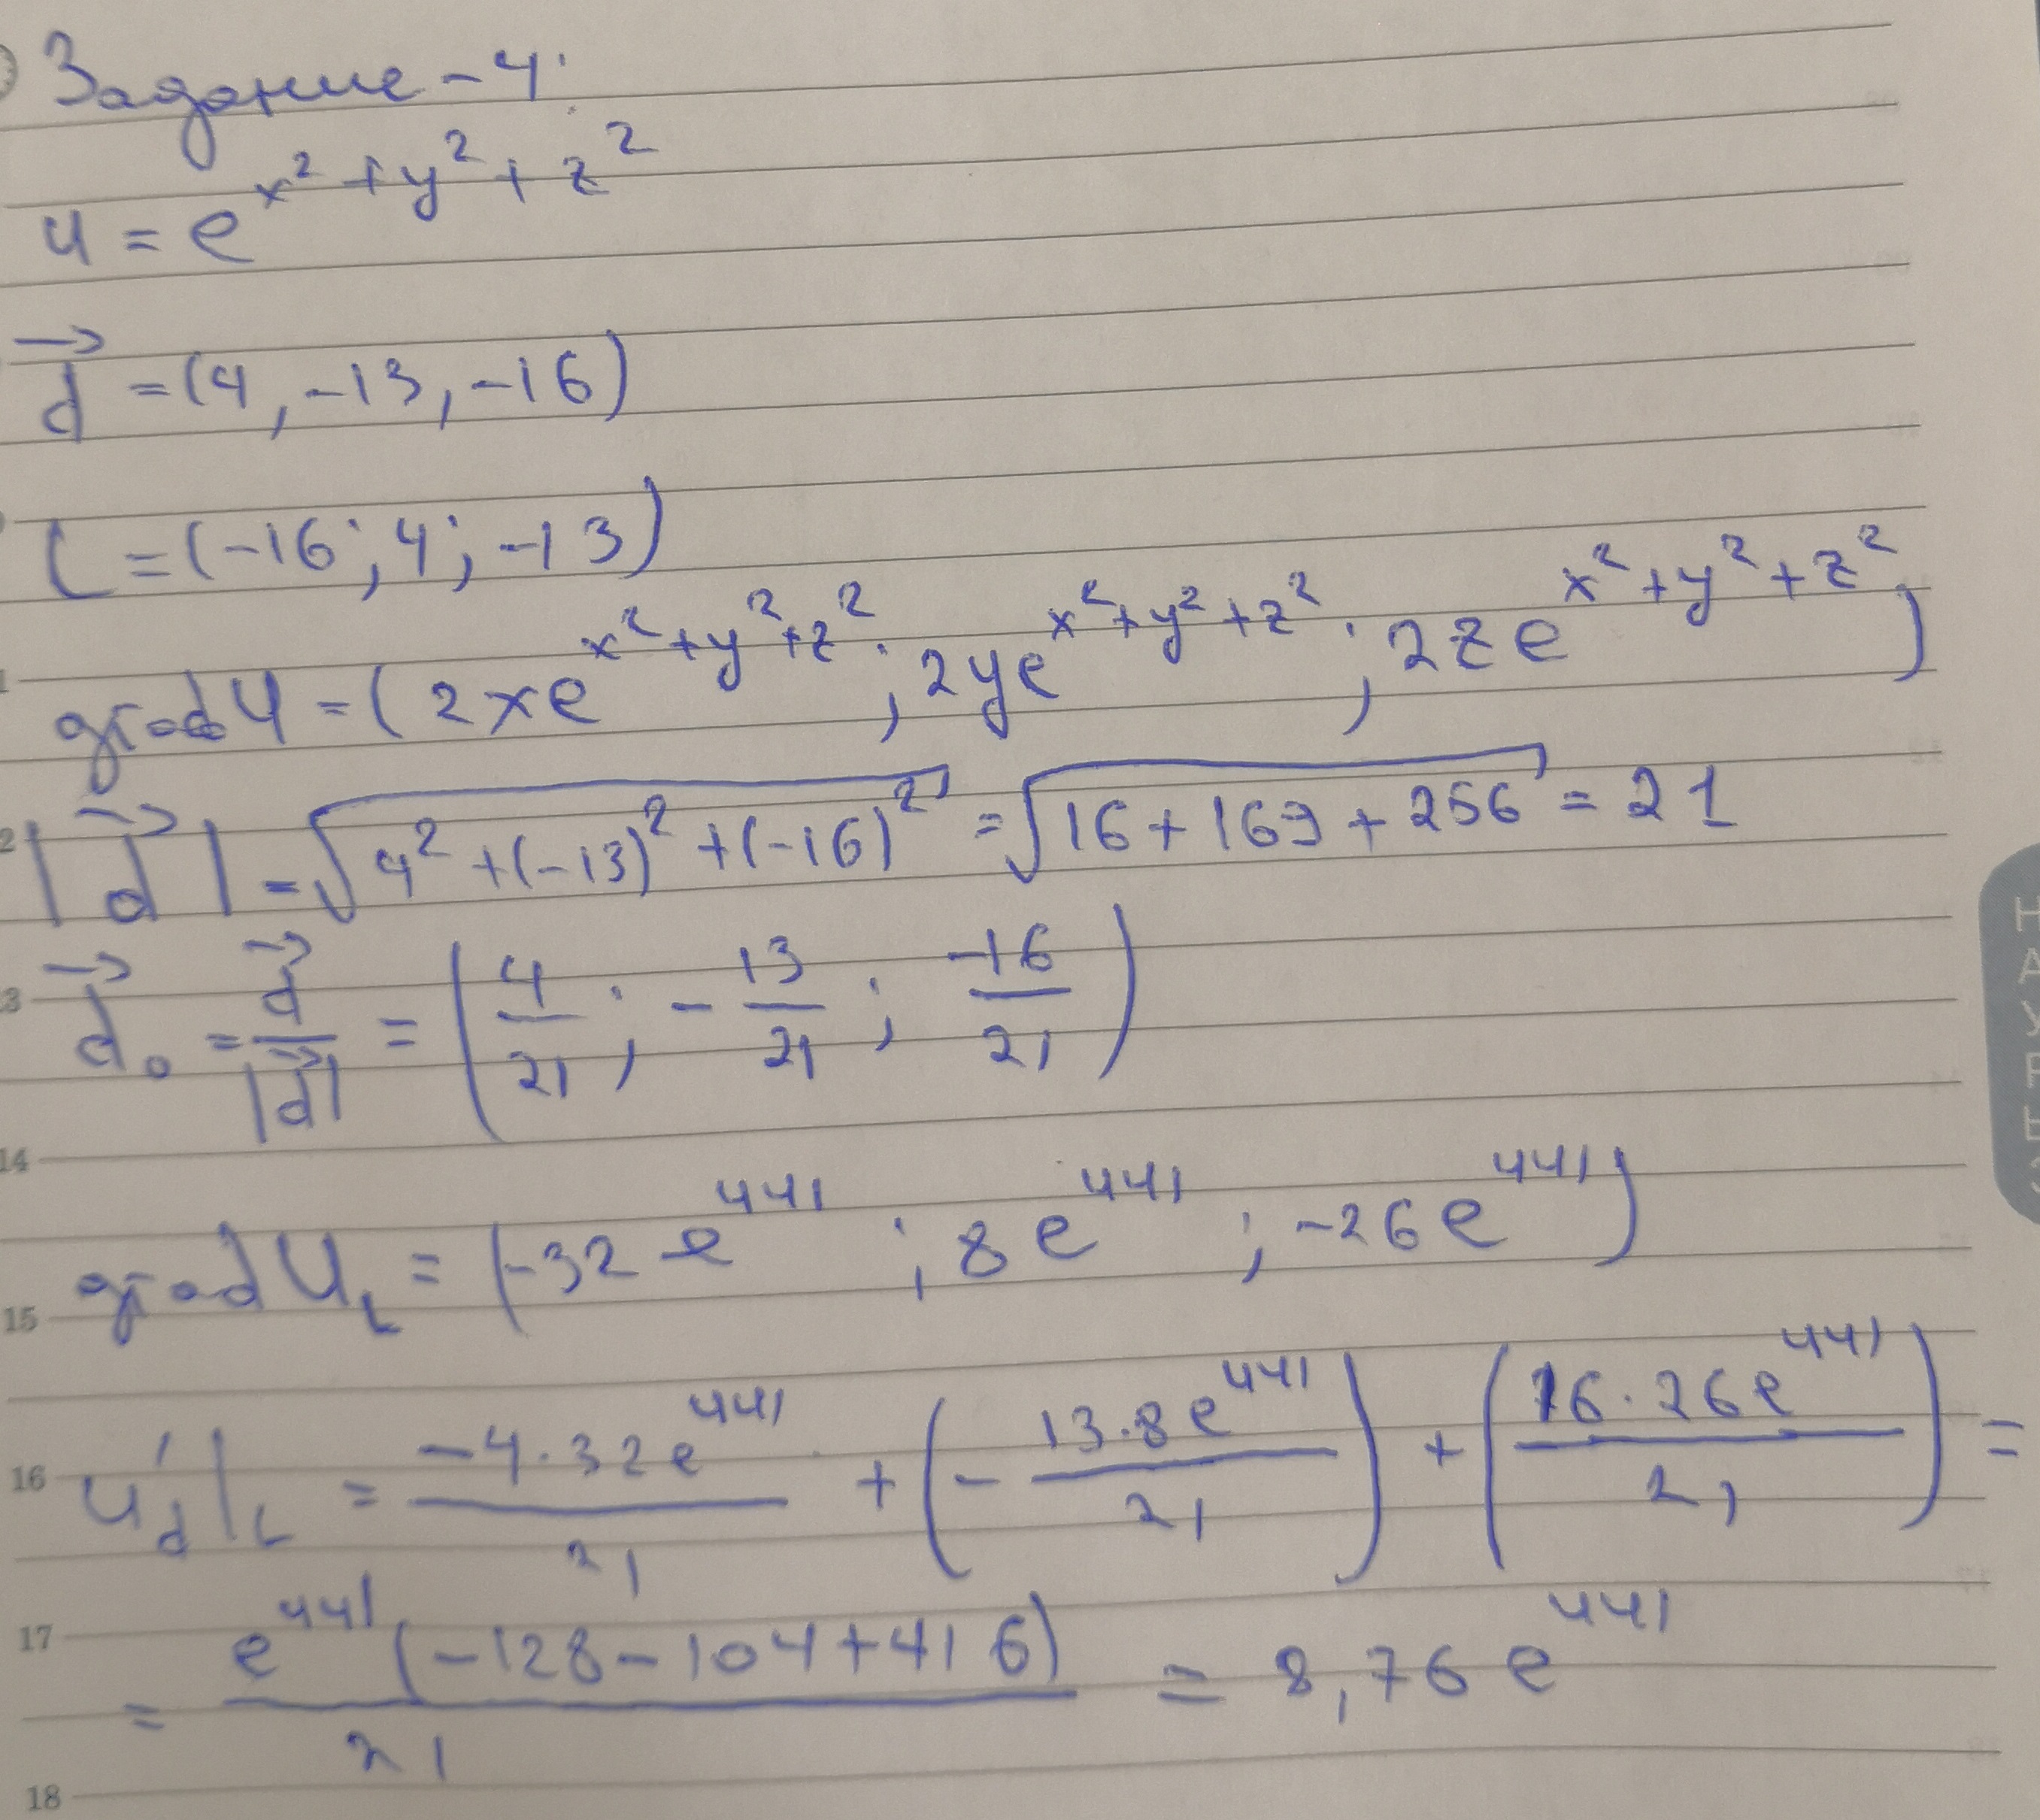 Задание - 4:
u = e^{x² + y² + z²}
\vec{d} = (4, -13, -16)
L = (-16; 4; -13)
grad u = (2xe^{x² + y² + z²}; 2ye^{x² + y² + z²}; 2ze^{x² + y² + z²})
|\vec{d}| = √(4² + (-13)² + (-16)²) = √(16 + 169 + 256) = 21
\vec{d}₀ = \vec{d}/|\vec{d}| = (4/21; -13/21; -16/21)
grad u_L = (-32e^{441}; 8e^{441}; -26e^{441})
u'_d|_L = -4·32e^{441}/21 + (-13·8e^{441}/21) + (16·26e^{441}/21) =
= e^{441}(-128 - 104 + 416)/21 = 8,76e^{441}
12
13
14
15
16
17
18